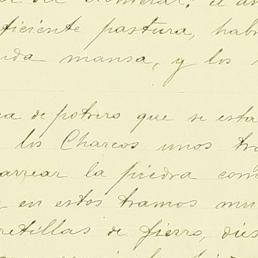 ficiente pastura, hab
da mansa, y los
a de potrero que se esta
los Charcos unos tr
arrear la piedra com
y en estos tramos mu
retillas de fierro, dies